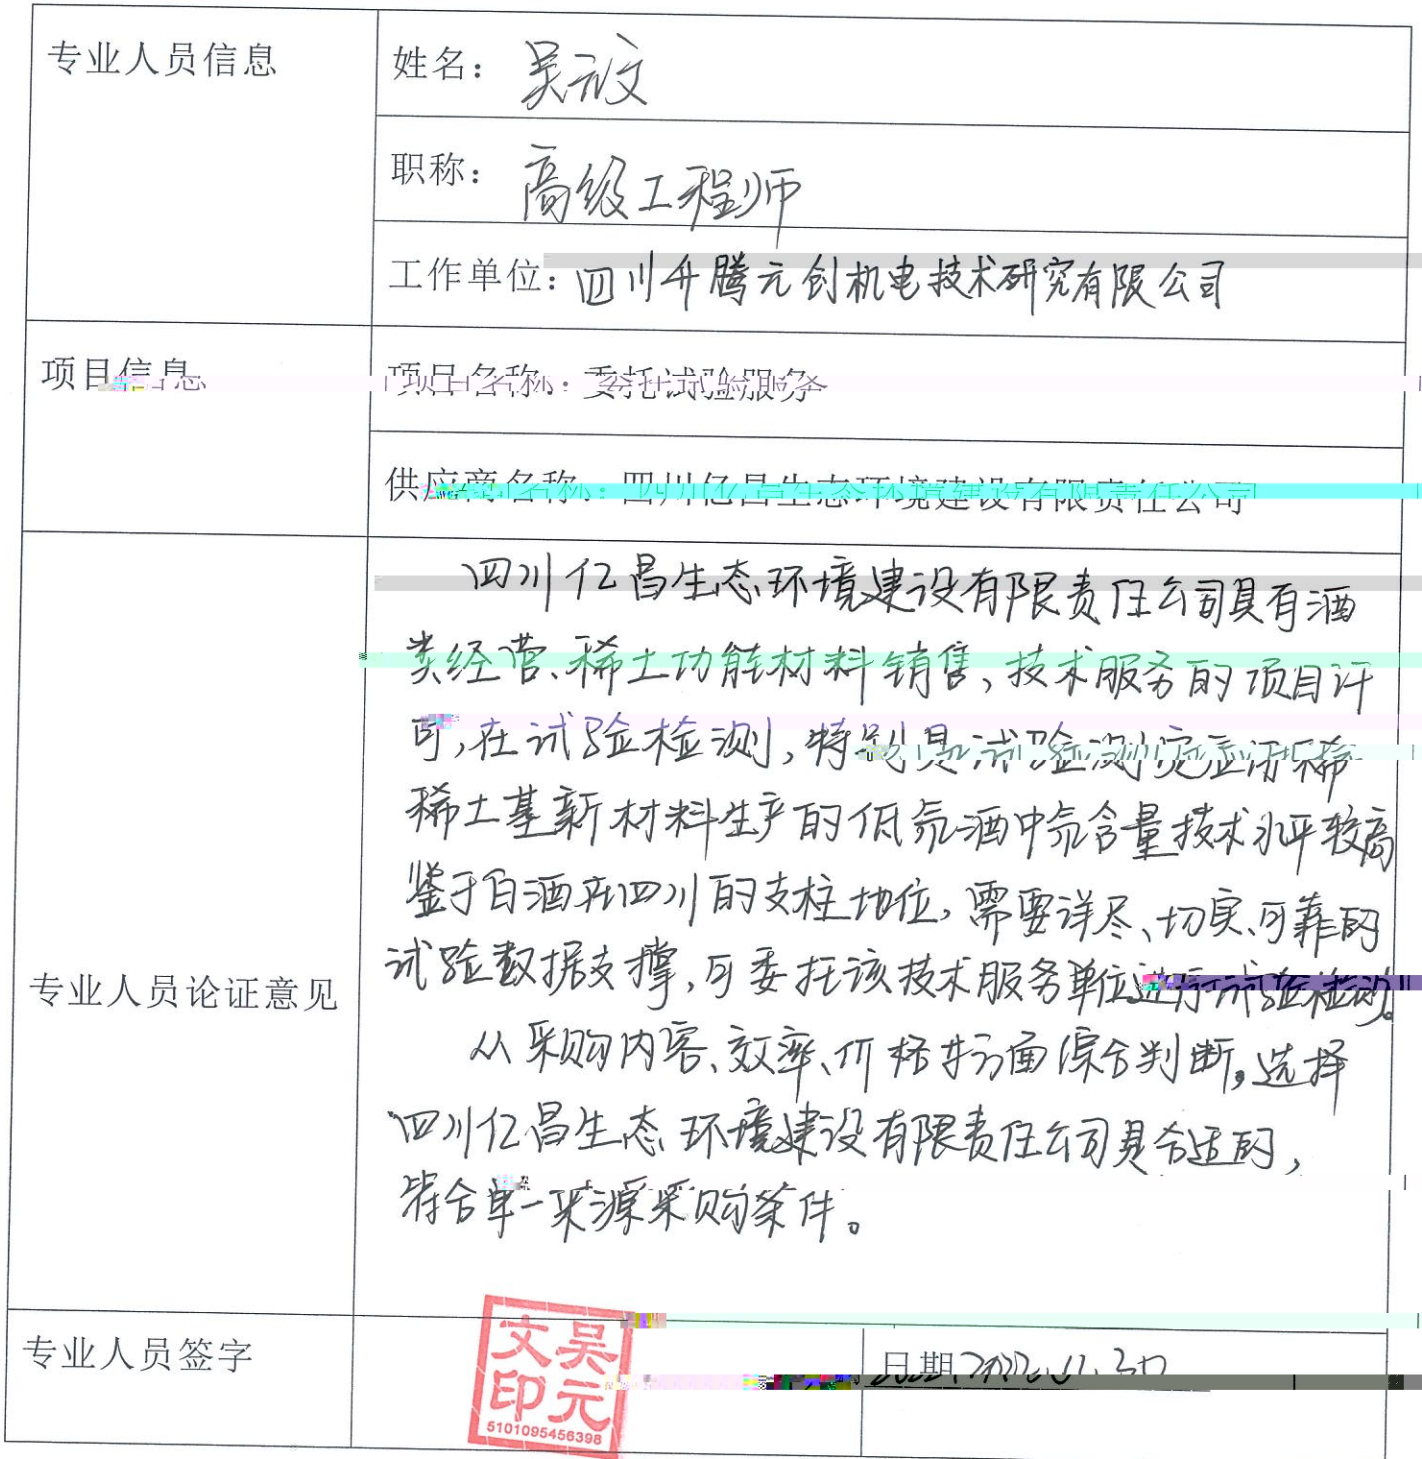 专业人员信息
姓名：吴元文
职称：高级工程师
工作单位：四川升腾元创机电技术研究有限公司
项目信息
项目名称：委托试验服务
供应商名称：四川亿昌生态环境建设有限责任公司
四川亿昌生态环境建设有限责任公司具有酒
类经营、稀土功能材料销售、技术服务的项目许
可，在试验检测，特别是试验测定应用稀
稀土基新材料生产的低氘酒中氘含量技术水平较高
鉴于白酒在四川的支柱地位，需要详尽、切实、可靠的
试验数据支撑，可委托该技术服务单位进行试验检测。
专业人员论证意见
从采购内容、效率、价格等方面综合判断，选择
四川亿昌生态环境建设有限责任公司是合适的，
符合单一来源采购条件。
专业人员签字
文吴
印元
5101095456398
日期 .11.30